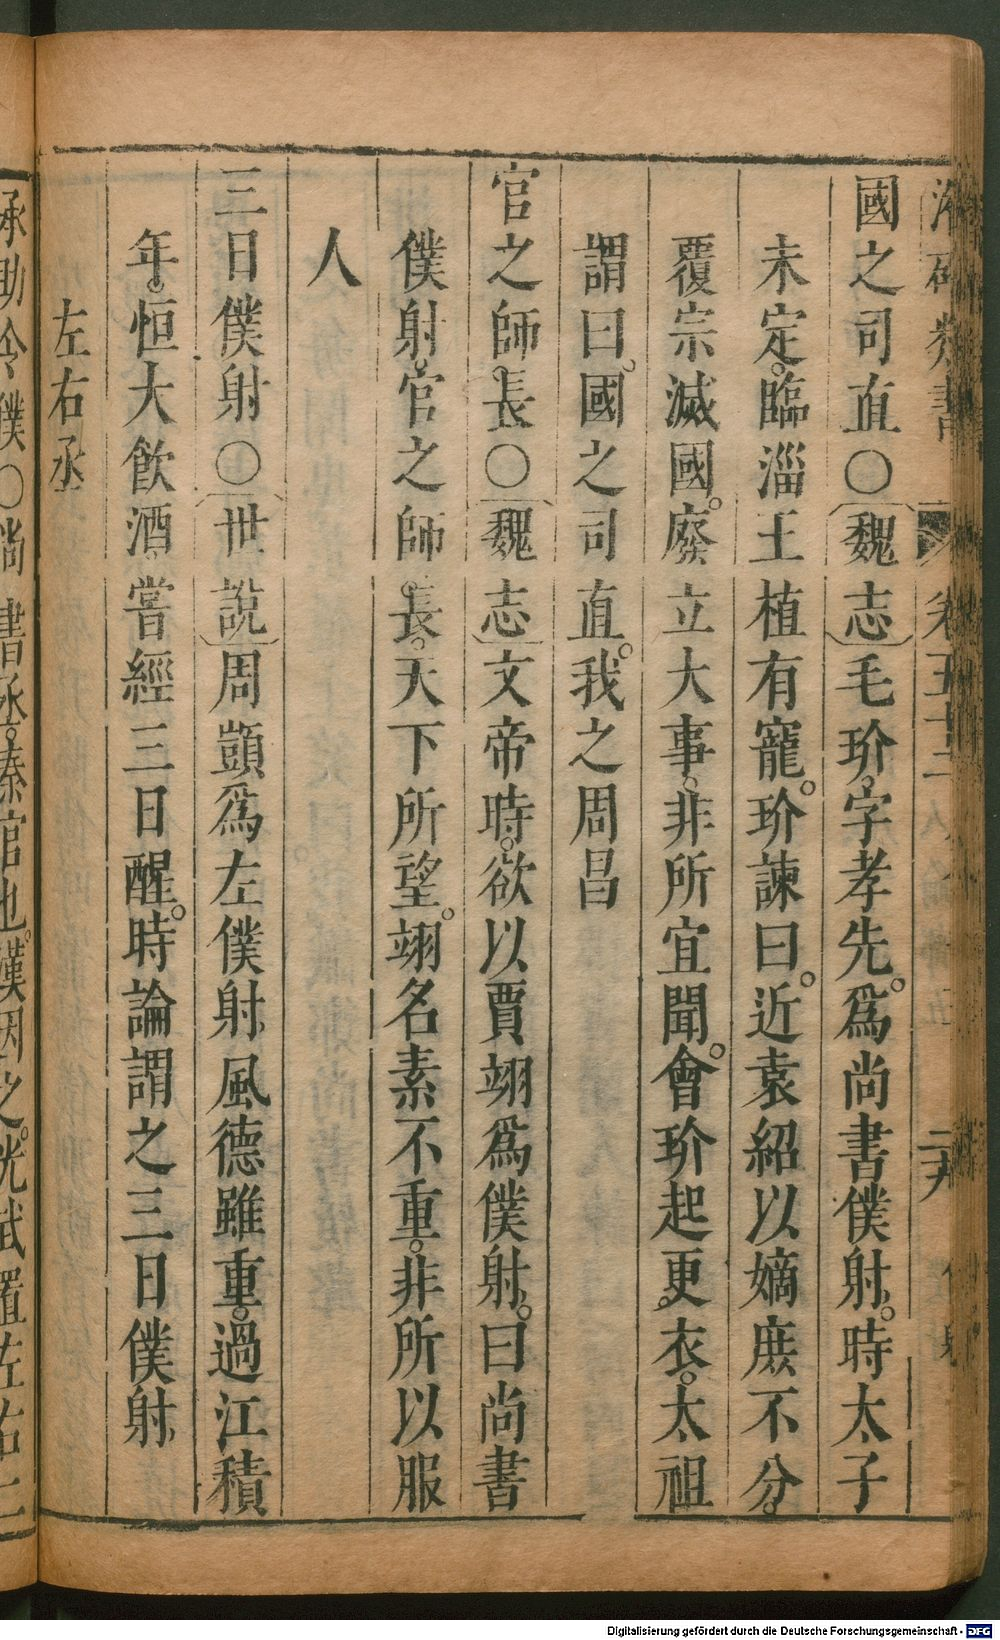 國之司直〇魏志毛玠。字孝先。爲尚書僕射。時太子
未定。臨淄王植有寵。玠諫曰。近袁紹以嫡庶不分。
覆宗滅國。廢立大事。非所宜聞。會玠起更衣。太祖
謂曰。國之司直。我之周昌
官之師長〇魏志文帝時。欲以賈翊爲僕射。曰尚書
僕射。官之師長。天下所望。翊名素不重。非所以服
人
三日僕射〇世說周顗爲左僕射風德雖重。過江積
年。恒大飲酒。嘗經三日醒。時論謂之三日僕射
左右丞
承助令僕〇尚書丞。秦官也。漢因之。光武置左右二
Digitalisierung gefördert durch die Deutsche Forschungsgemeinschaft - DFG